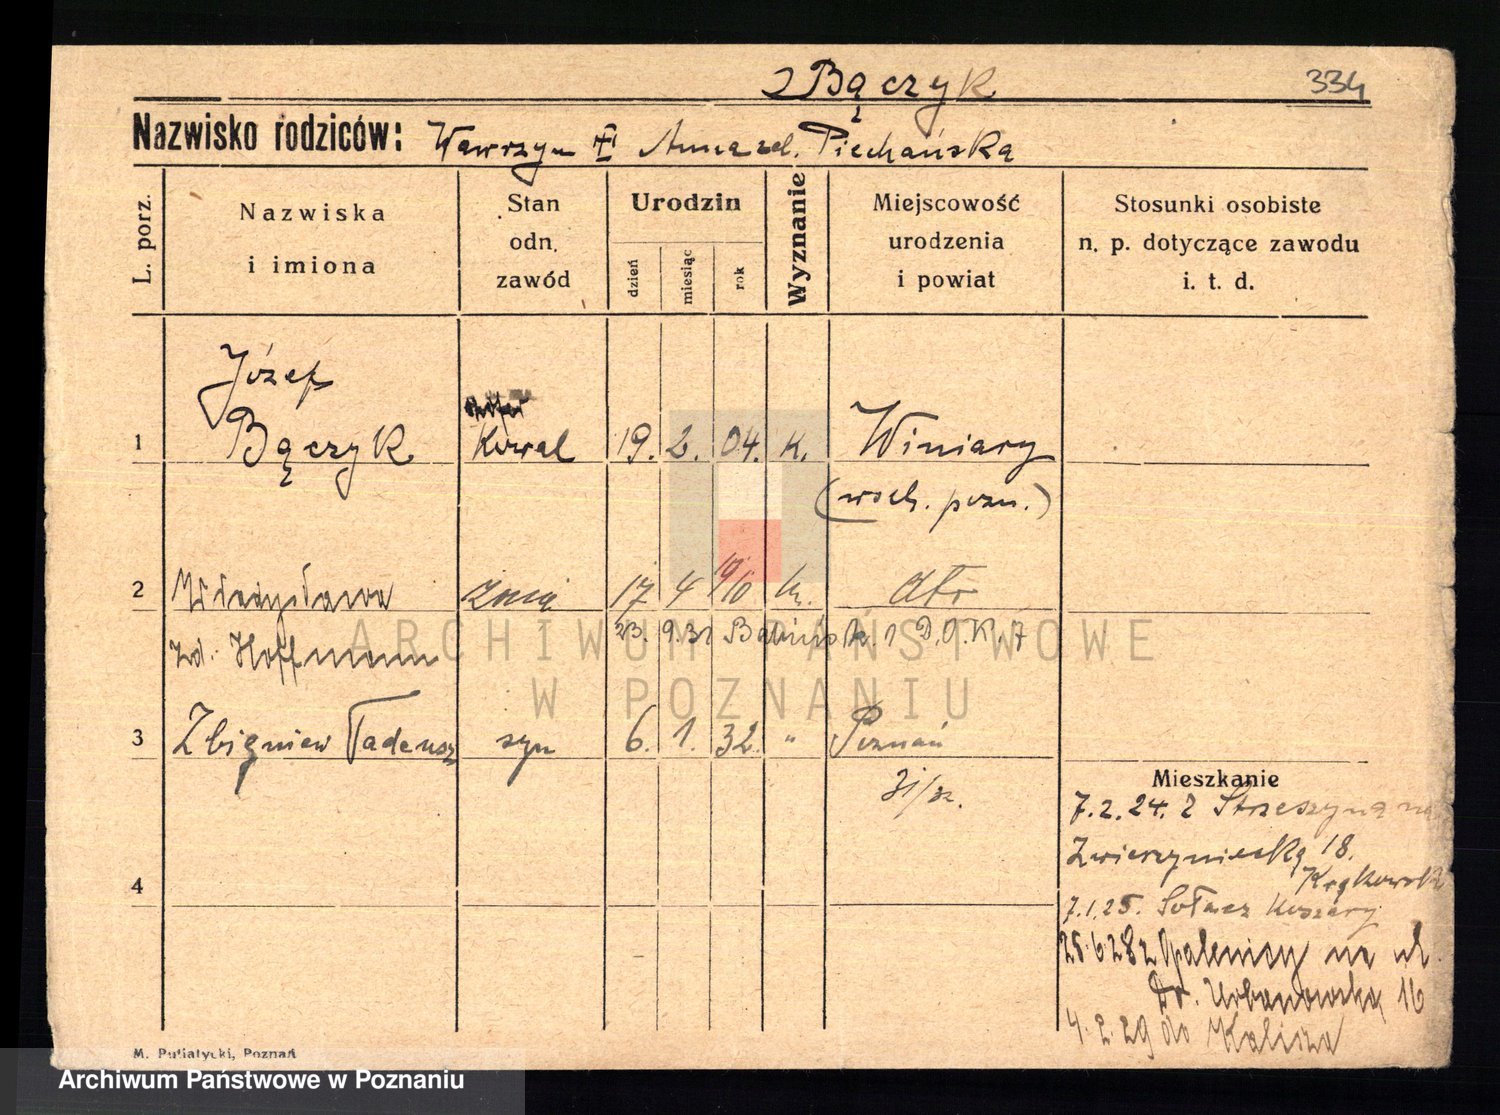 Bączyk 334
Nazwisko rodziców: Wawrzyn Anna zd. Piechańska
L. porz.
Nazwiska
i imiona
Stan
odn.
zawód
Urodzin
dzień
miesiąc
rok
Wyznanie
Miejscowość
urodzenia
i powiat
Stosunki osobiste
n. p. dotyczące zawodu
i. t. d.
Józef
1 Bączyk Kowal 19. 2. 04. K. Winiary
(wsch. pozn.)
2 Władysława żona 17 4 10 k.
zd. Hoffmann 23. 9. 31 D.O.K. 7
3 Zbigniew Tadeusz syn 6. 1. 32. " Poznań
31/32.
Mieszkanie
7.2.24. Z Strzeszyna na
Zwierzyniecką 18.
4 Krąkowska
7.1.25. Sołacz Koszary
25.6.28 z Opalenicy na ul.
Dr. Urbanowską 16
4.2.29 do Kalisza
M. Putiatycki, Poznań
ARCHIWUM PAŃSTWOWE
W POZNANIU
Archiwum Państwowe w Poznaniu